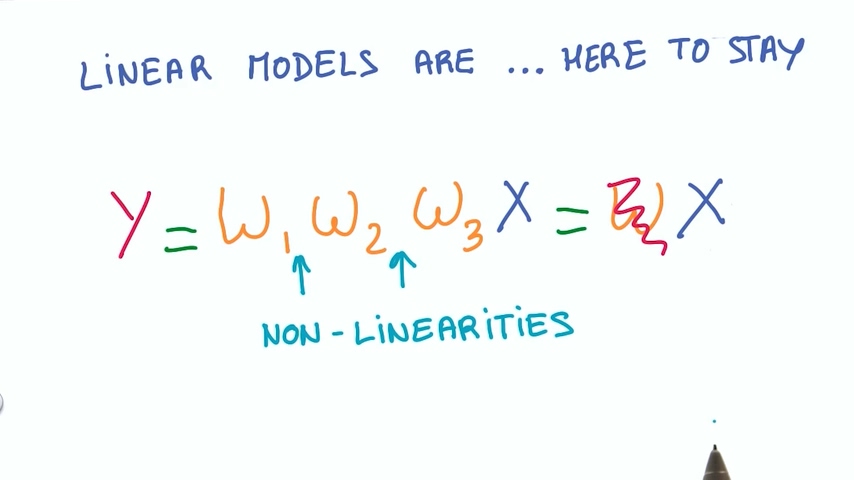 LINEAR MODELS ARE ... HERE TO STAY
Y = W₁ W₂ W₃ X = W X
NON-LINEARITIES